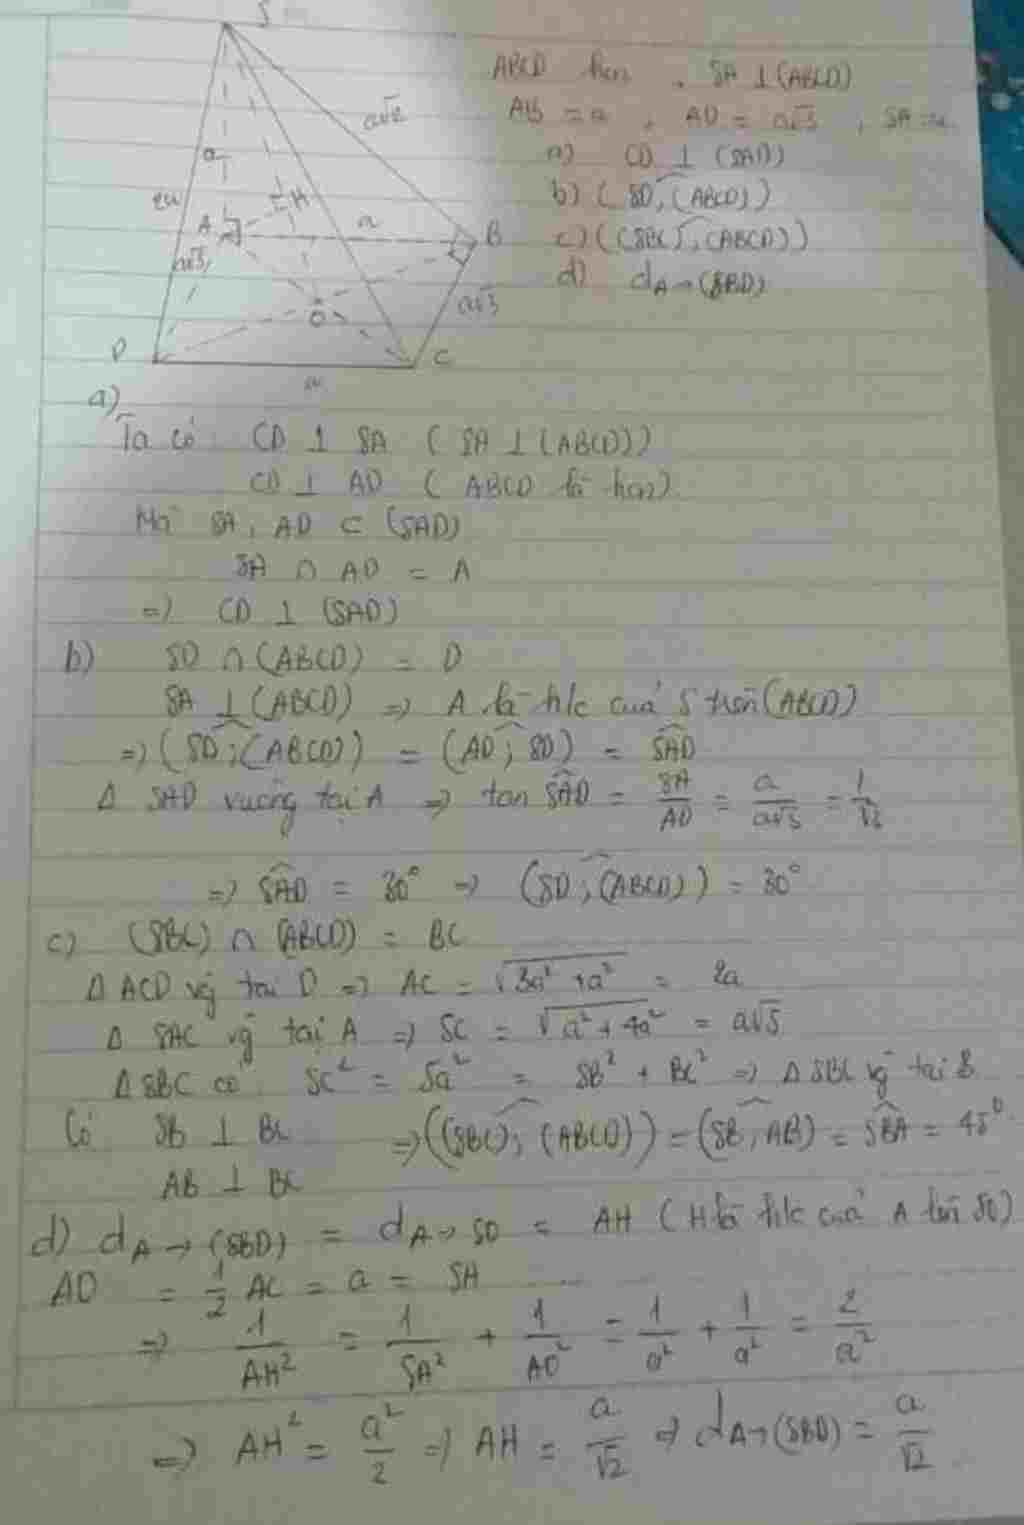 S
a√2
a
2a
H
A
a
B
a√3
a√3
O
D
C
a
ABCD hcn , SA ⊥ (ABCD)
AB = a , AD = a√3 , SA = a
a) CD ⊥ (SAD)
b) (SD, (ABCD))
c) ((SBC), (ABCD))
d) dA→(SBD)
a)
Ta có CD ⊥ SA ( SA ⊥ (ABCD))
CD ⊥ AD ( ABCD là hcn)
Mà SA, AD ⊂ (SAD)
SA ∩ AD = A
=) CD ⊥ (SAD)
b) SD ∩ (ABCD) = D
SA ⊥ (ABCD) =) A là h/c của S trên (ABCD)
=) (SD; (ABCD)) = (AD; SD) = SAD
Δ SAD vuông tại A =) tan SAD = SA/AD = a/a√3 = 1/√3
=) SAD = 30° =) (SD; (ABCD)) = 30°
c) (SBC) ∩ (ABCD) = BC
Δ ACD vg tại D =) AC = √(3a² + a²) = 2a
Δ SAC vg tại A =) SC = √(a² + 4a²) = a√5
Δ SBC có SC² = 5a² = SB² + BC² =) Δ SBC vg tại B
Có SB ⊥ BC =) ((SBC); (ABCD)) = (SB; AB) = SBA = 45°
AB ⊥ BC
d) dA→(SBD) = dA→SO = AH (H là h/c của A lên SO)
AO = 1/2 AC = a = SA
=) 1/AH² = 1/SA² + 1/AO² = 1/a² + 1/a² = 2/a²
=) AH² = a²/2 =) AH = a/√2 =) dA→(SBD) = a/√2